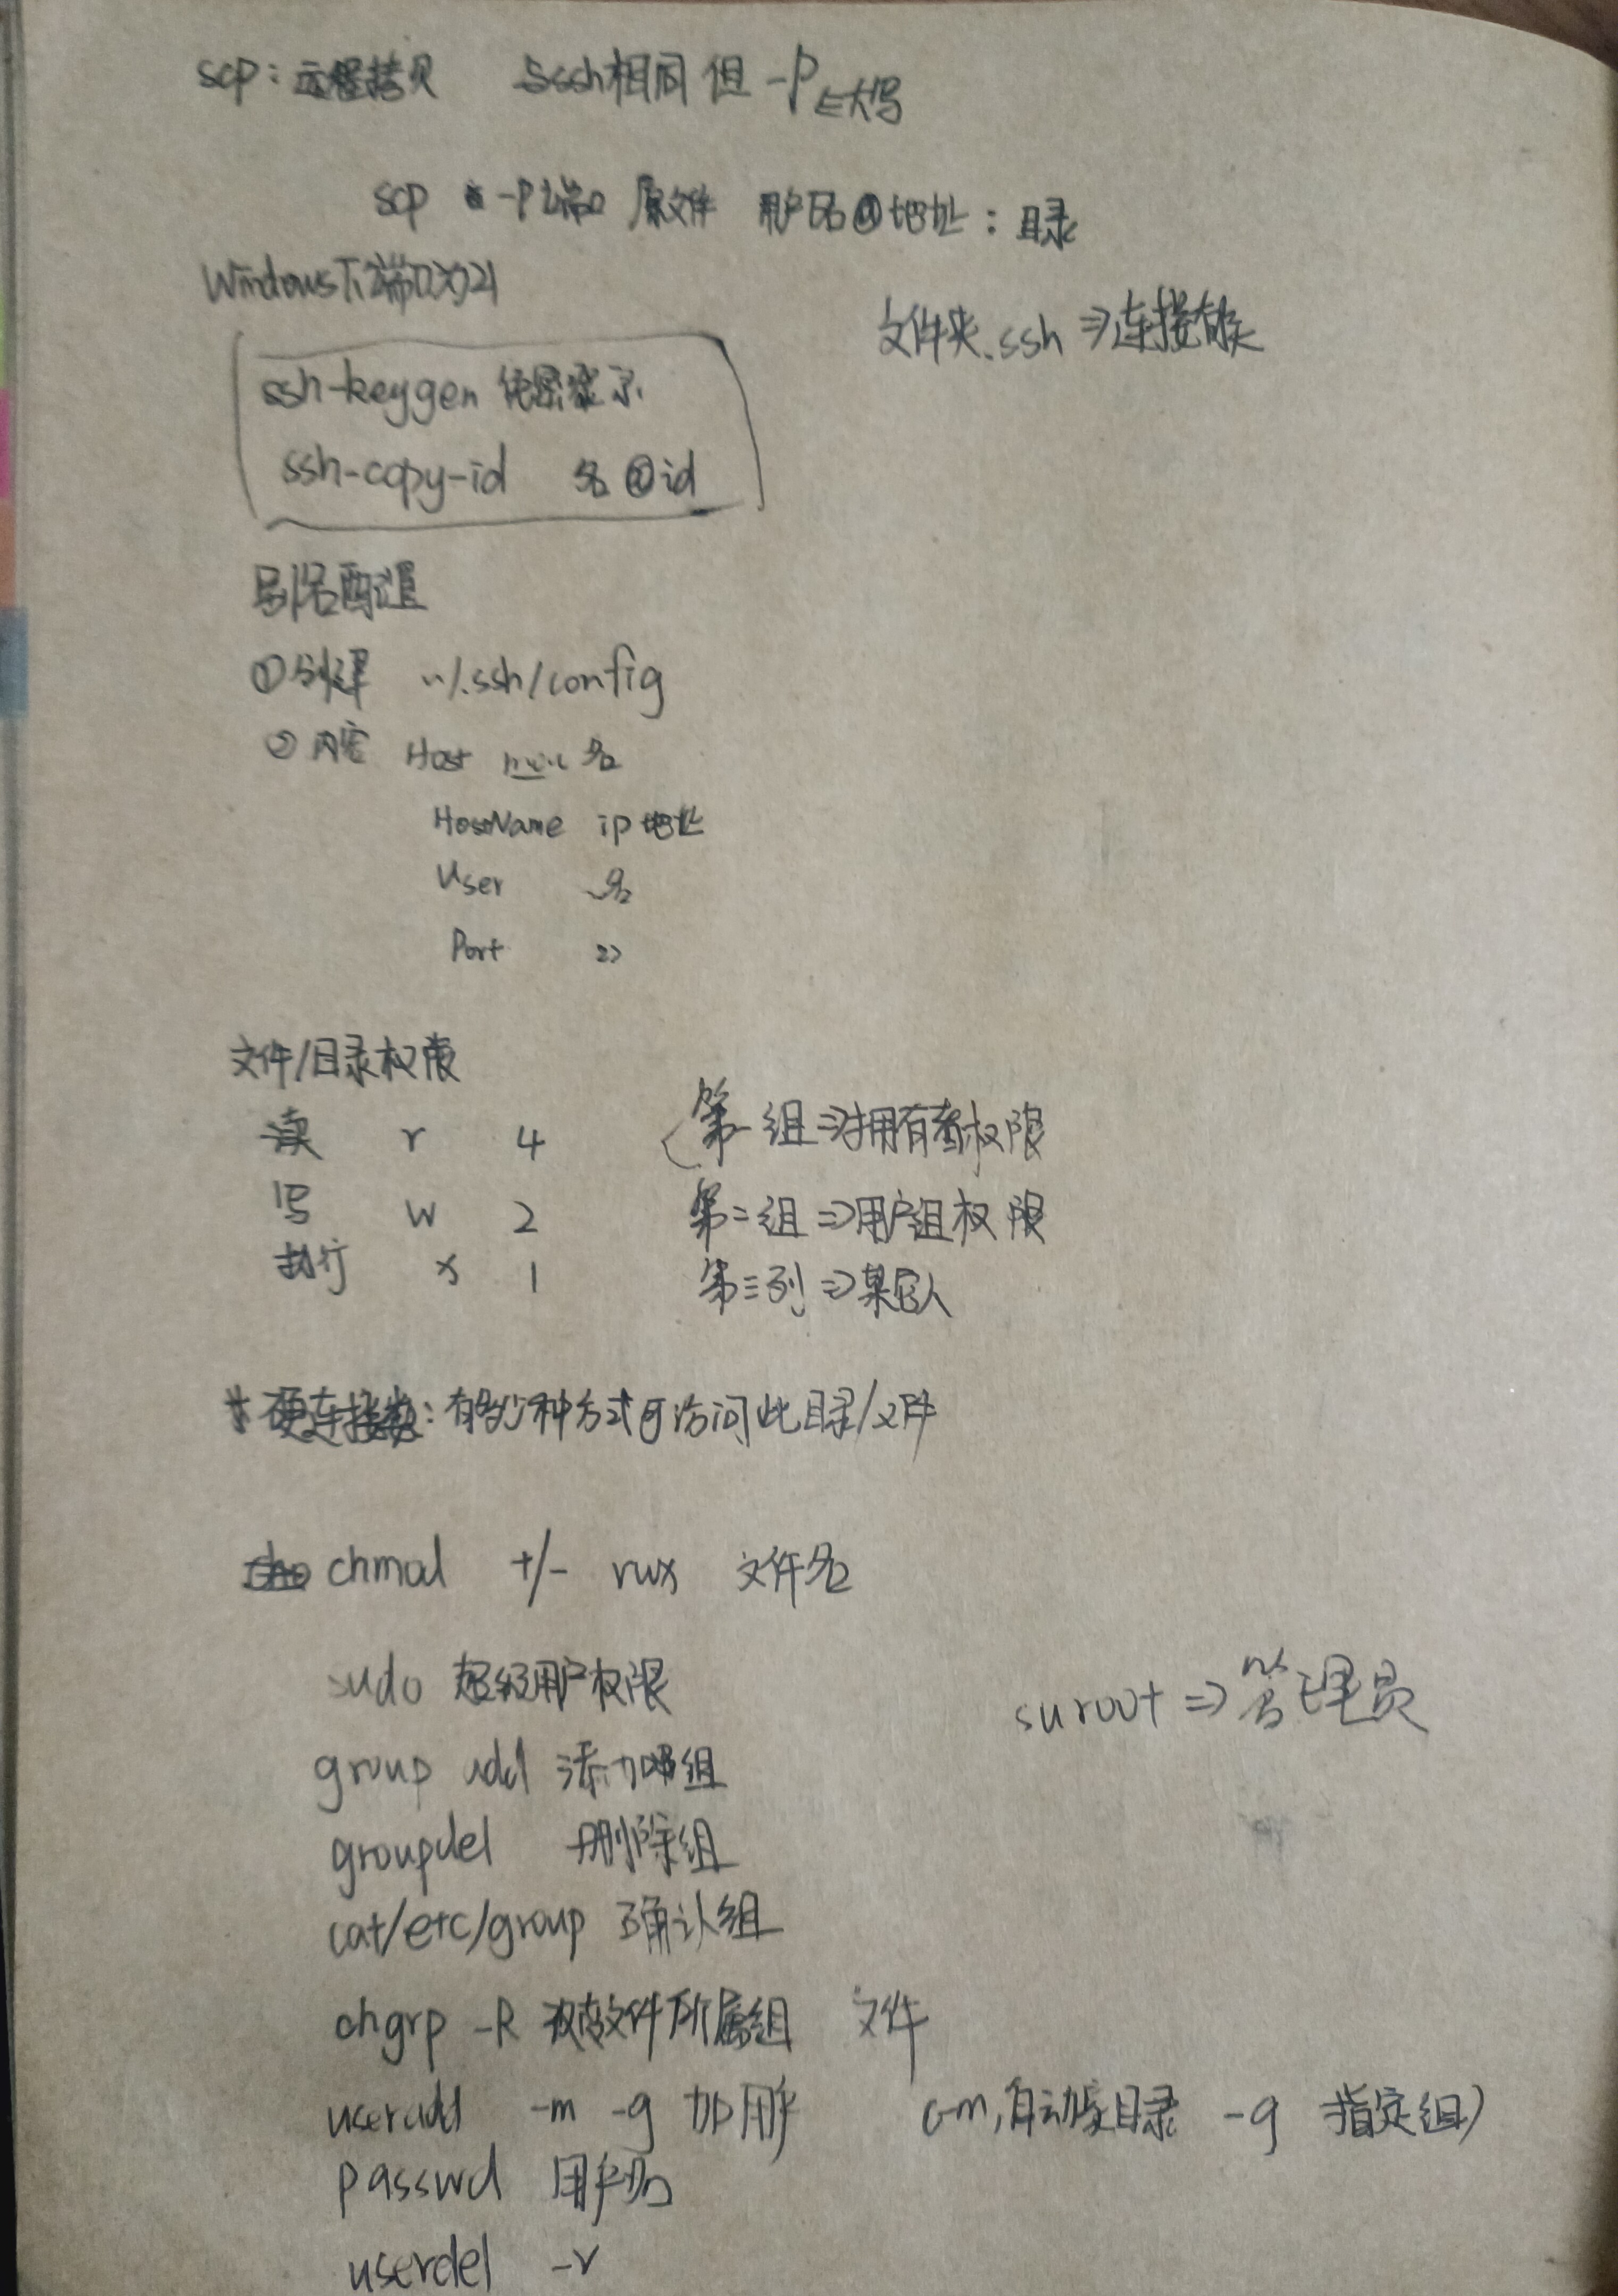 scp：远程拷贝 与ssh相同 但 -P是大写
scp -P 端口 原文件 用户名@地址：目录
Windows下端口为21
文件夹.ssh ⇒连接有关
ssh-keygen
ssh-copy-id 名@id
别名配置
①创建 ~/.ssh/config
②内容 Host 名
HostName ip地址
User 名
Port 22
文件/目录权限
读 r 4 第一组⇒拥有者权限
写 w 2 第二组⇒用户组权限
执行 x 1 第三列⇒其它人
*硬连接数：有多少种方式可访问此目录/文件
chmod +/- rwx 文件名
sudo 超级用户权限
su root ⇒管理员
group add 添加组
groupdel 删除组
cat/etc/group 确认组
chgrp -R 文件所属组 文件
useradd -m -g 加用户 (-m,自动家目录 -g 指定组)
passwd 用户名
userdel -r